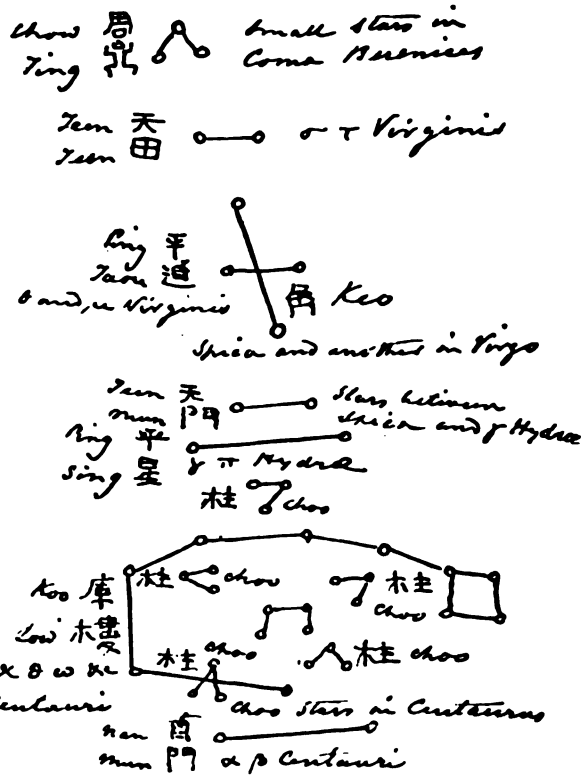 Chow 周 Small stars in
Ting 鼎 Coma Berenices
Teen 天
Teen 田 σ τ Virginis
Ping 平
Taou 道
θ and, u Virginis 角 Keo
Spica and another in Virgo
Teen 天 Stars between
Mun 門 Spica and γ Hydræ
Ping 平
Sing 星 γ π Hydræ
柱 Choo
Koo 庫 柱 Choo 柱
Choo
Low 樓
柱 Choo 柱 Choo
α θ ω &c
Centauri Choo stars in Centaurus
Nan 南
Mun 門 α β Centauri